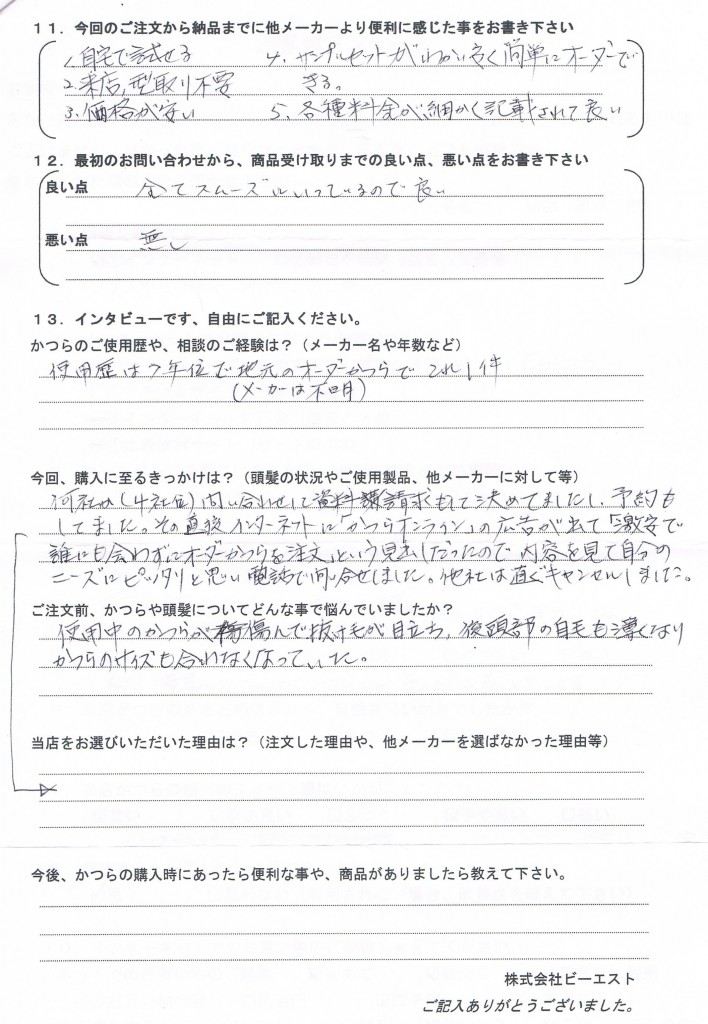 １１．今回のご注文から納品までに他メーカーより便利に感じた事をお書き下さい
1. 自宅で試せる
2. 来店,型取り不要
3. 価格が安い
4. サンプルセットがわかり易く簡単にオーダーで
きる。
5. 各種料金が細かく記載されて良い
１２．最初のお問い合わせから、商品受け取りまでの良い点、悪い点をお書き下さい
良い点 全てスムーズにいっているので良い
悪い点 無し
１３．インタビューです、自由にご記入ください。
かつらのご使用歴や、相談のご経験は？（メーカー名や年数など）
使用歴は7年位で地元のオーダーかつらでこれ1件
(メーカーは不明)
今回、購入に至るきっかけは？（頭髪の状況やご使用製品、他メーカーに対して等）
何社か(4社位)問い合わせして資料請求もして決めてましたし、予約も
してました。その直後インターネットに「かつらオンライン」の広告が出て「激安で
誰にも会わずにオーダーかつらを注文」という見出しだったので内容を見て自分の
ニーズにピッタリと思い電話で問い合せしました。他社は直ぐキャンセルしました。
ご注文前、かつらや頭髪についてどんな事で悩んでいましたか？
使用中のかつらが傷んで抜け毛が目立ち、後頭部の自毛も薄くなり
かつらのサイズも合わなくなっていた。
当店をお選びいただいた理由は？（注文した理由や、他メーカーを選ばなかった理由等）
今後、かつらの購入時にあったら便利な事や、商品がありましたら教えて下さい。
株式会社ビーエスト
ご記入ありがとうございました。